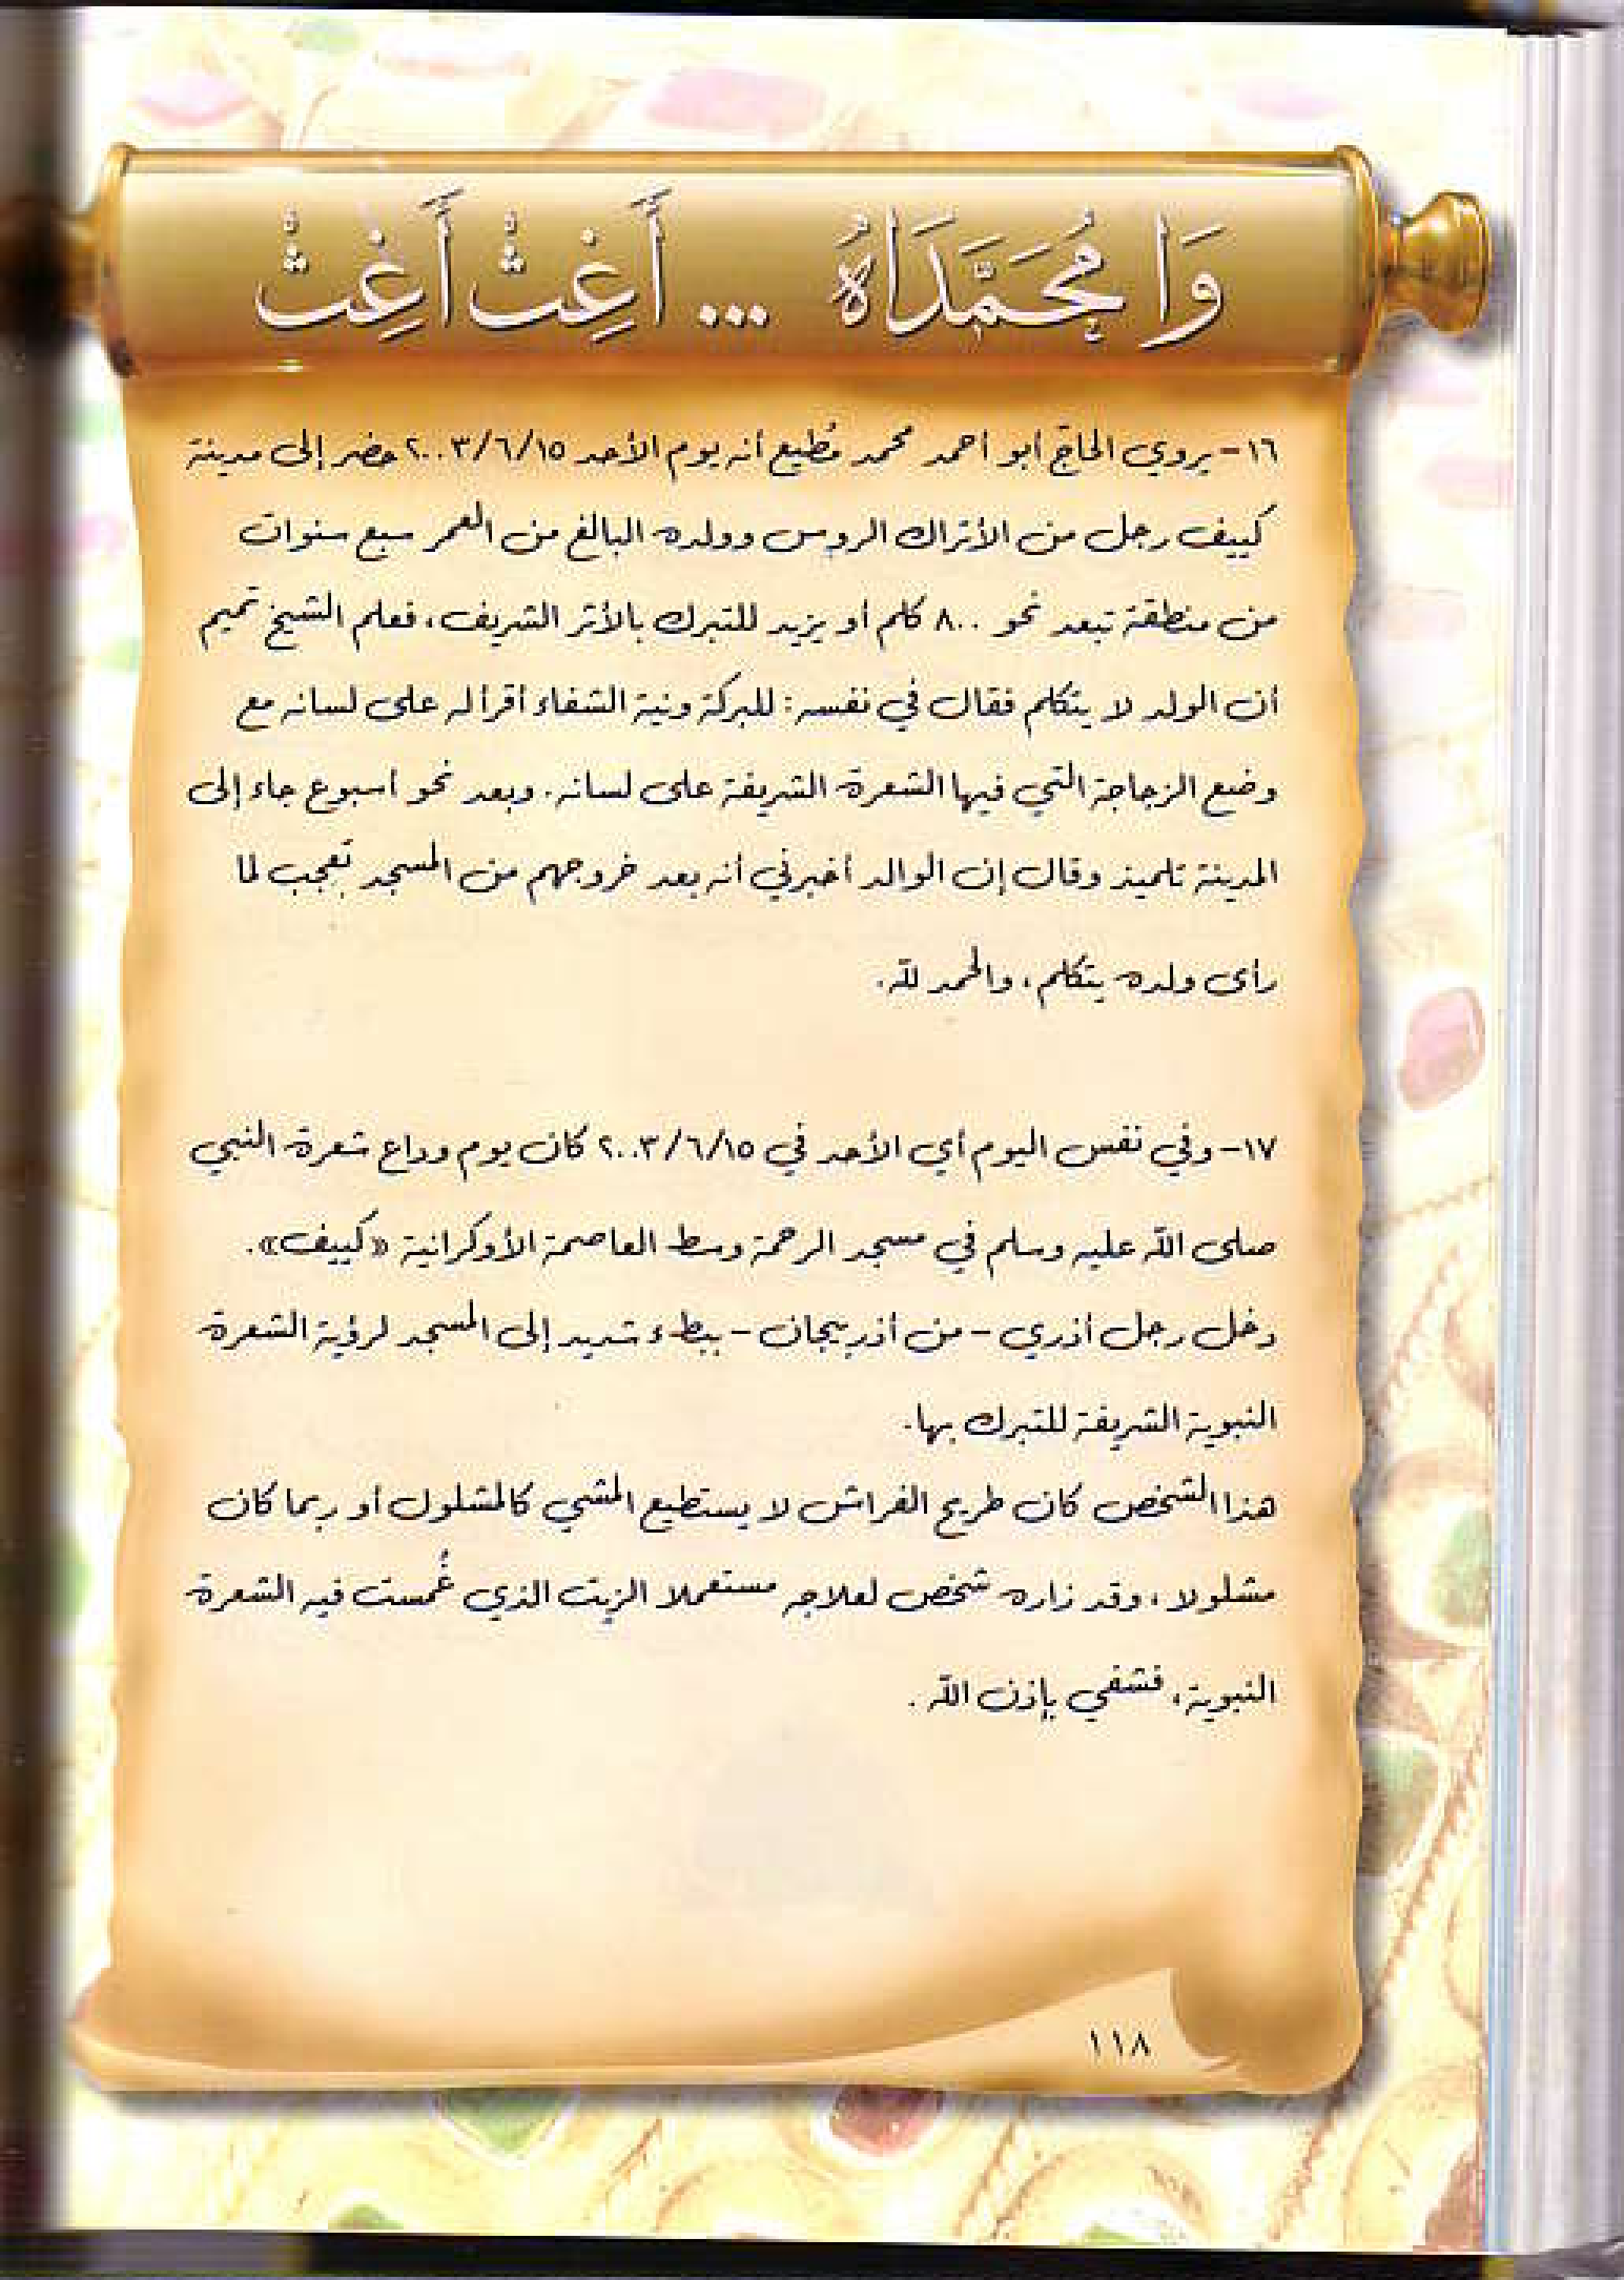 وَا مُحَمَّدَاهُ ... أَغِثْ أَغِثْ
١٦- يروي الحاج أبو أحمد محمد مُطيع أنه يوم الأحد ٢٠٠٣/٦/١٥ حضر إلى مدينة
كييف رجل من الأتراك الروس وولده البالغ من العمر سبع سنوات
من منطقة تبعد نحو ٨٠٠ كلم أو يزيد للتبرك بالأثر الشريف، فعلم الشيخ تميم
أن الولد لا يتكلم فقال في نفسه: للبركة ونية الشفاء أقرأ له على لسانه مع
وضع الزجاجة التي فيها الشعرة الشريفة على لسانه. وبعد نحو أسبوع جاء إلى
المدينة تلميذ وقال إن الوالد أخبرني أنه بعد خروجهم من المسجد تعجب لما
رأى ولده يتكلم، والحمد لله.
١٧- وفي نفس اليوم أي الأحد في ٢٠٠٣/٦/١٥ كان يوم وداع شعرة النبي
صلى الله عليه وسلم في مسجد الرحمة وسط العاصمة الأوكرانية «كييف».
دخل رجل أذري - من أذربيجان - ببطء شديد إلى المسجد لرؤية الشعرة
النبوية الشريفة للتبرك بها.
هذا الشخص كان طريح الفراش لا يستطيع المشي كالمشلول أو ربما كان
مشلولا، وقد زاره شخص لعلاجه مستعملا الزيت الذي غُمست فيه الشعرة
النبوية، فشفي بإذن الله .
١١٨